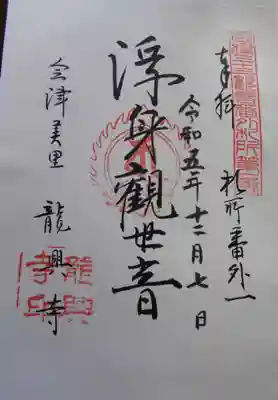 奉拝 札所番外一
令和五年十二月七日
浮身觀世音
会津美里 龍興寺
龍興
寺印